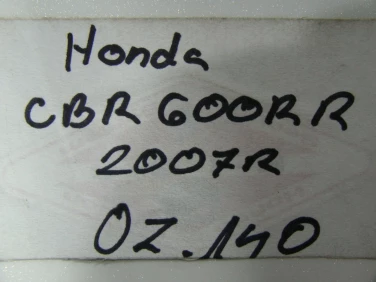 Honda
CBR 600RR
2007R
OZ.140